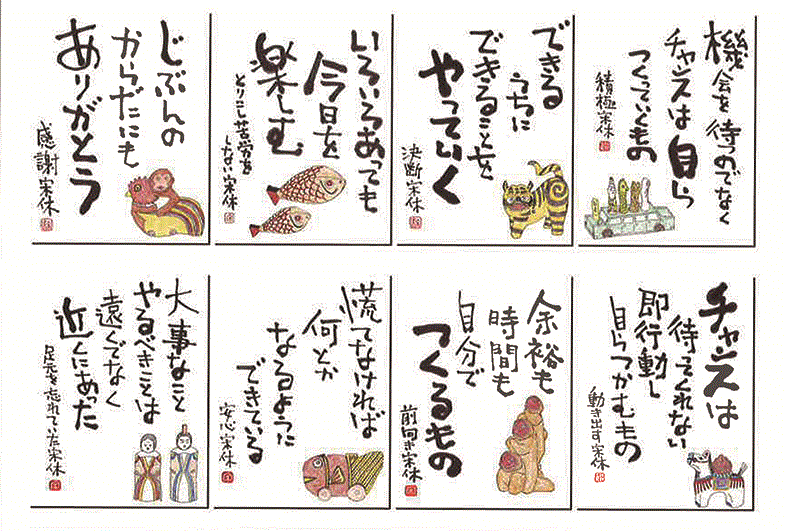 機会を待つのでなく
チャンスは自ら
つくっていくもの
積極宋休
できる
うちに
できることを
やっていく
決断宋休
いろいろあっても
今日を
楽しむ
とりこし苦労を
しない宋休
じぶんの
からだにも
ありがとう
感謝宋休
チャンスは
待ってくれない
即行動し
自らつかむもの
動き出す宋休
余裕も
時間も
自分で
つくるもの
前向き宋休
慌てなければ
何とか
なるように
できている
安心宋休
大事なこと
やるべきことは
遠くでなく
近くにあった
足元を忘れていた宋休